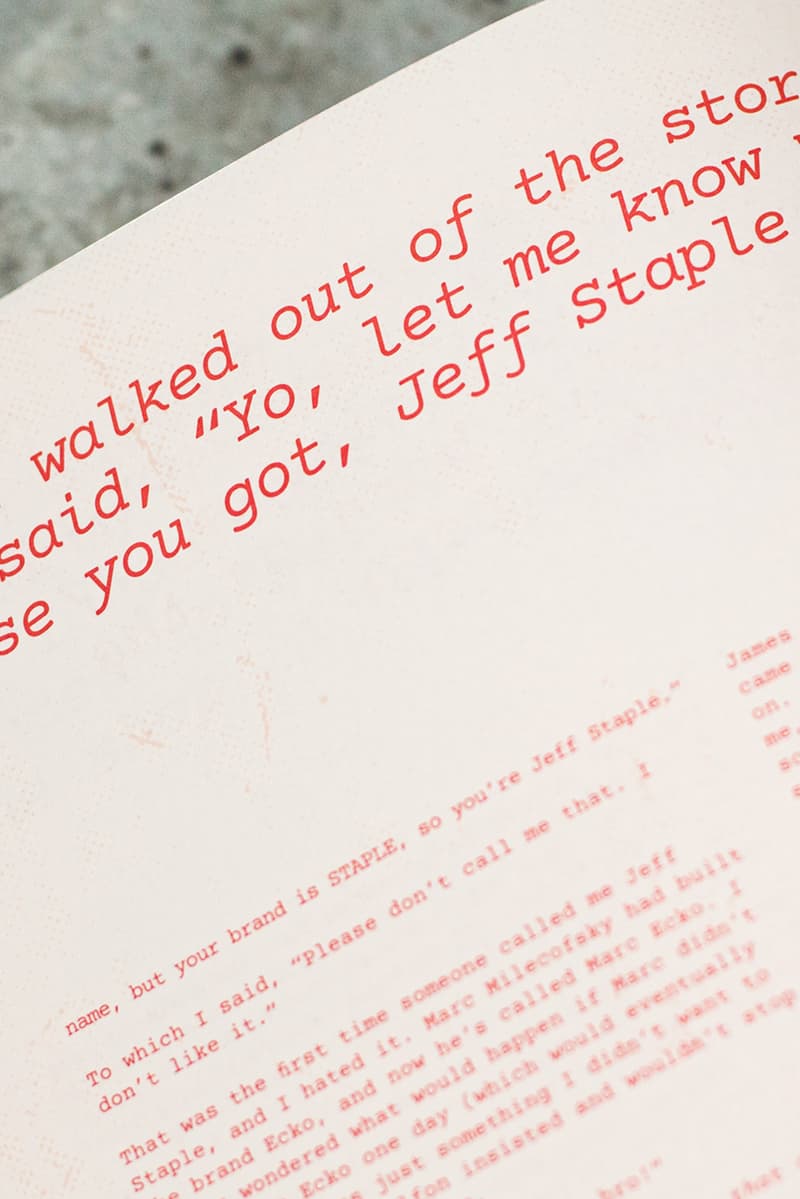 walked out of the stor
said, “Yo, let me know
se you got, Jeff Staple
name, but your brand is STAPLE, so you’re Jeff Staple.”
To which I said, “Please don’t call me that. I
don’t like it.”
That was the first time someone called me Jeff
Staple, and I hated it. Marc Milecofsky had built
he brand Ecko, and now he’s called Marc Ecko. I
wondered what would happen if Marc didn’t
Ecko one day (which would eventually
s just something I didn’t want to
fon insisted and wouldn’t stop
bro!”
that
James
came
on.
me.
so